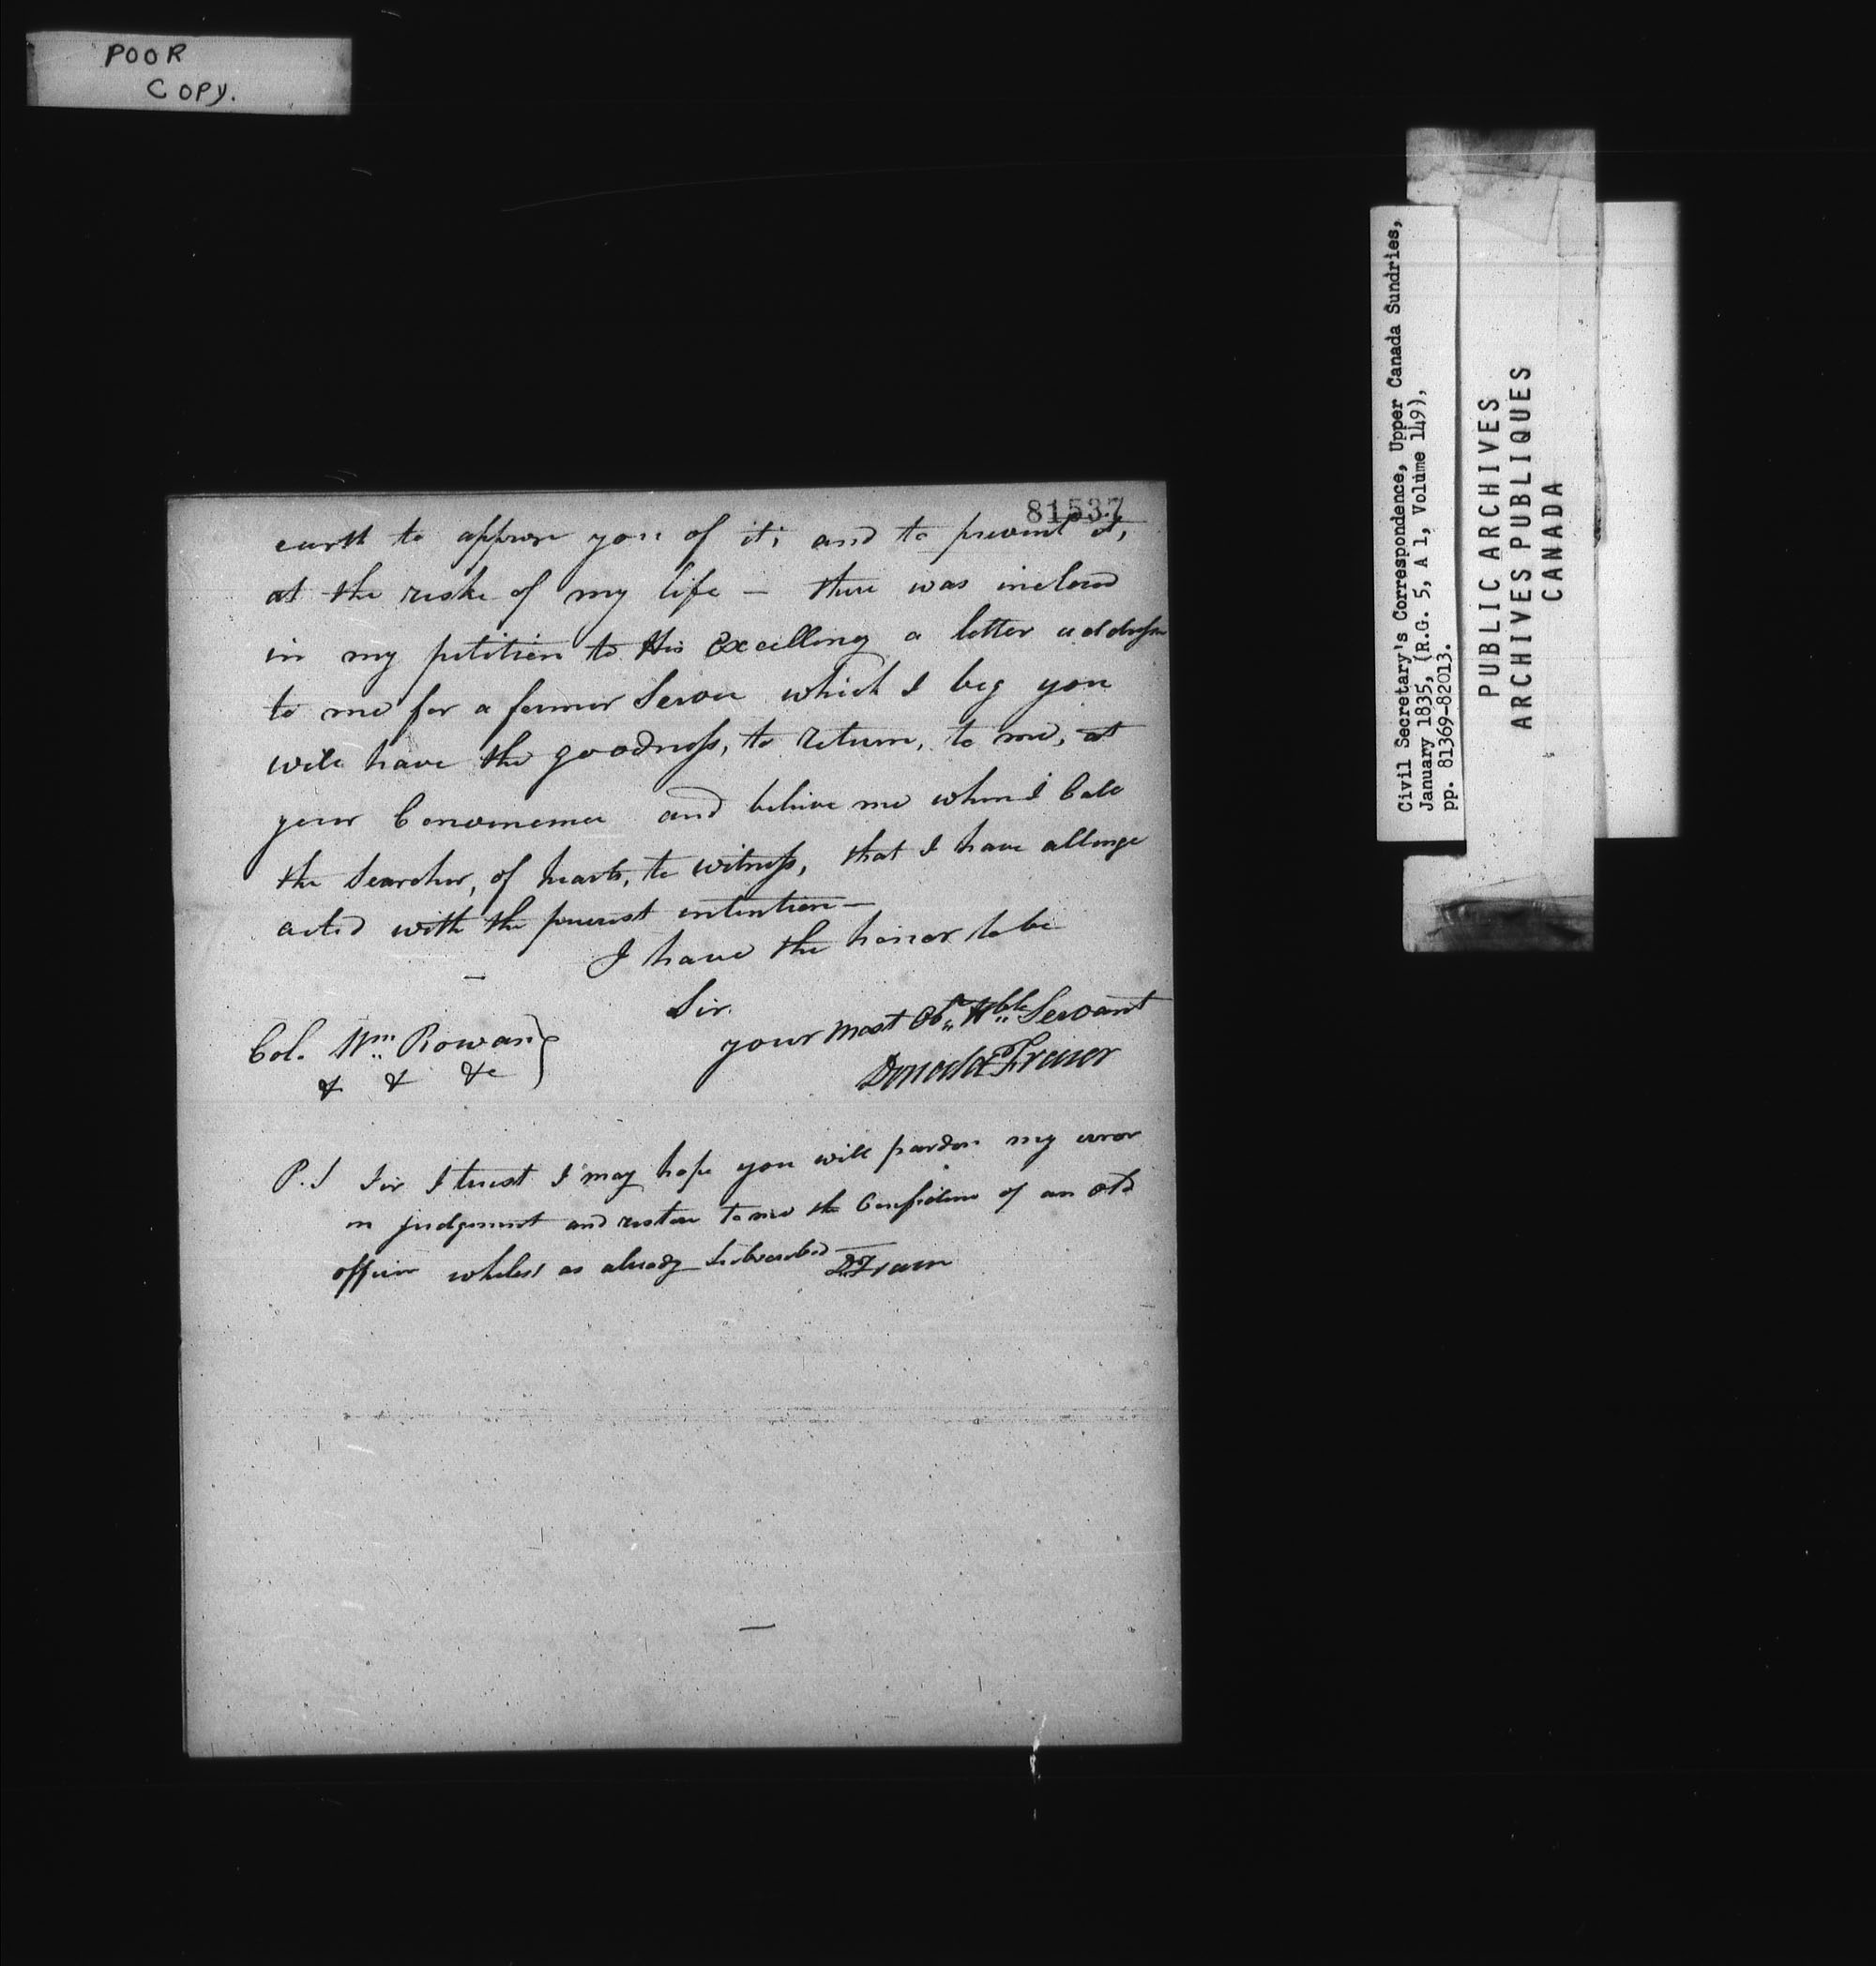 POOR
COPY.
81537
earth to apprise you of it; and to prevent it,
at the riske of my life — there was inclosed
in my petition to His Excellency a letter address
to me for a former Service which I beg you
will have the goodness, to return, to me, at
your Convenience and believe me when I Call
the Searcher, of hearts, to witness, that I have allways
acted with the purest intention —
I have the honor to be
Sir.
your most Obt Hble Servant
Donald Fraser
Col. Wm Rowan
& & &c
P.S Sir I trust I may hope you will pardon my error
in judgement and restore to me the Confidence of an old
officer whilest as already Subscribed
D. Fraser
Civil Secretary's Correspondence, Upper Canada Sundries,
January 1835, (R.G. 5, A 1, Volume 149),
pp. 81369-82013.
PUBLIC ARCHIVES
ARCHIVES PUBLIQUES
CANADA